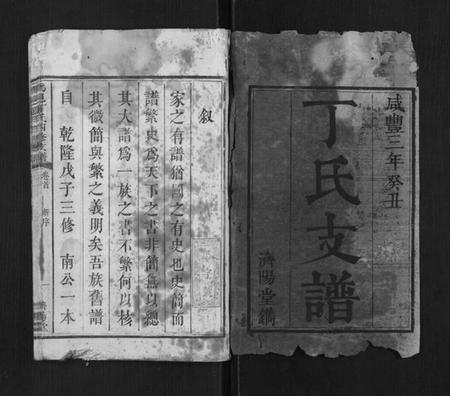 咸豐三年癸丑
丁氏支譜
濟陽堂鐫
敘
家之有譜猶國之有史也史簡而
譜繁史為天下之書非簡無以總
其大譜為一族之書不繁何以核
其微簡與繁之義明矣吾族舊譜
自 乾隆戊子三修 南公一本
卷首